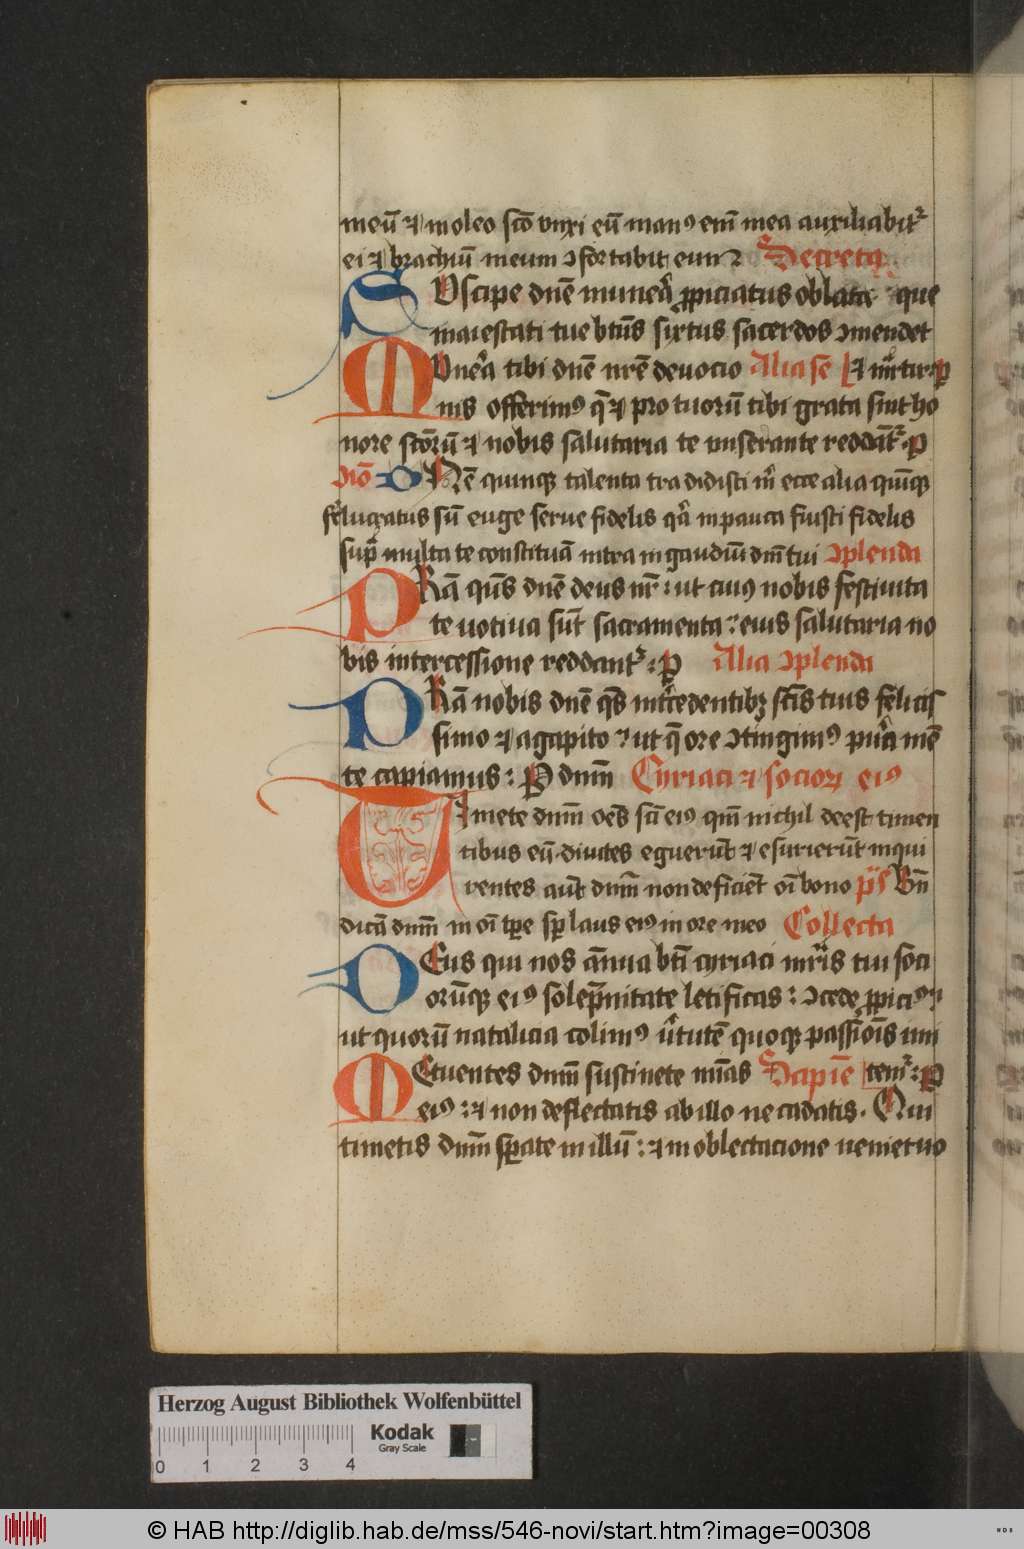 meū et in oleo scō vnxi eū manꝰ em̄ mea auxiliabitᷣ
ei et brachiū meum ↄfortabit eum Secreta
SUscipe dn̄e munerᷓa ꝓpiciatus oblata que
maiestati tue btūs sixtus sacerdos ↄmendet
MUnerᷓa tibi dn̄e nrē deuocio Alia se et mᷓrtirꝝ
nis offerimꝰ q̄ et pro tuorū tibi grata sint ho
nore sctōrū et nobis salutaria te miserante reddātᷣ. P
ↄiō DNē quinqꝫ talenta tradidisti mᷓ ecce alia quīqꝫ
sᷓ lucratus sū euge serue fidelis qᷓ in pauca fuisti fidelis
supᷓ multa te constituā intra in gaudiū dn̄i tui ↄplenda
PRā qūs dn̄e deus nr̄ : ut cuiꝰ nobis festiuita
te uotiua sūt sacramenta : eius salutaria no
bis intercessione reddantᷣ : P Alia ↄplenda
PRā nobis dn̄e qs̄ intᷓcedentibꝫ sctīs tuis felicis
simo et agapito : ut q̄ ore ↄtingimꝰ purᷓa mē
te capiamus : P dn̄m Cyriaci et socioꝝ eiꝰ
TImete dn̄m oēs scī eiꝰ qm̄ nichil deest timen
tibus eū diuites eguerūt et esurierūt inqui
rentes aūt dn̄m non deficiēt oī bono p̄s Bn̄
dicā dn̄m in oī tꝑe sꝑ laus eiꝰ in ore meo Collecta
DEus qui nos ānua btī cyriaci mᷓris tui soci
orūqꝫ eiꝰ solēpnitate letificas : ↄcede ꝓpiciꝰ :
ut quorū natalicia colimꝰ uᷓtutē quoqꝫ passiōīs imi
MEtuentes dn̄m sustinete mīas Sapiē temᷣ : P
eiꝰ : et non deflectatis ab illo ne cadatis. Qui
timetis dn̄m sꝑate in illū : et in oblectacione ueniet uo
Herzog August Bibliothek Wolfenbüttel
Kodak
Gray Scale
0 1 2 3 4
© HAB http://diglib.hab.de/mss/546-novi/start.htm?image=00308